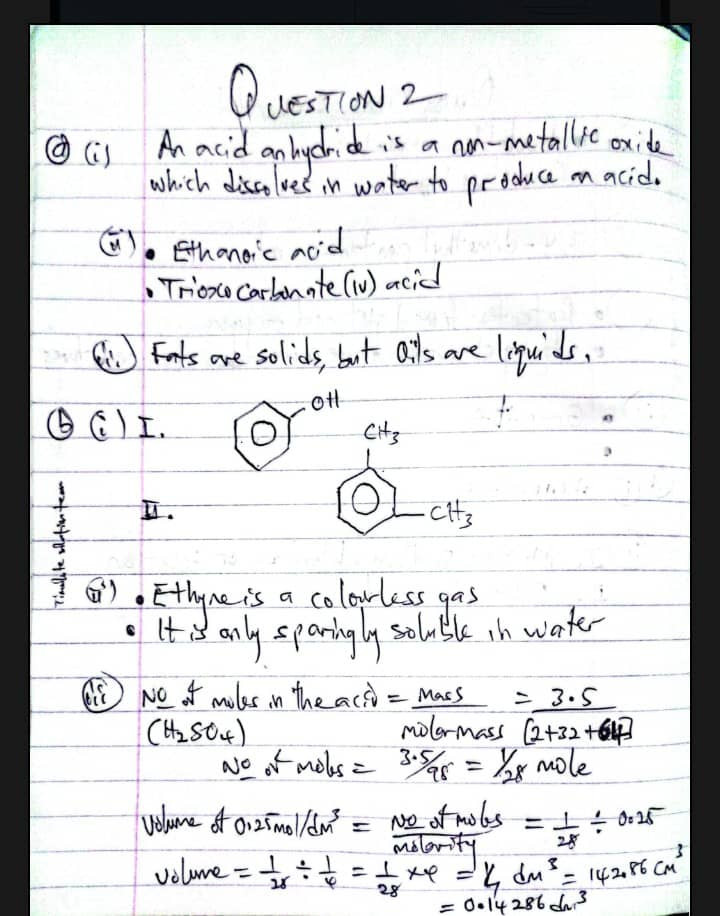 QUESTION 2
(a) (i) An acid anhydride is a non-metallic oxide
which dissolves in water to produce an acid.
(ii) • Ethanoic acid
• Trioxocarbonate (iv) acid
(iii.) Fats are solids, but Oils are liquids.
(b) (i) I. OH
CH3
II. CH3
(ii) • Ethyne is a colourless gas
• It is only sparingly soluble in water
(iii) No of moles in the acid = Mass = 3.5
(H2SO4) molar mass [2+32+64]
No of moles = 3.5/98 = 1/28 mole
Volume of 0.25mol/dm3 = No of moles = 1/28 ÷ 0.25
molarity
Volume = 1/28 ÷ 1/4 = 1/28 x4 = 1/7 dm3 = 142.86 cm3
= 0.14286 dm3